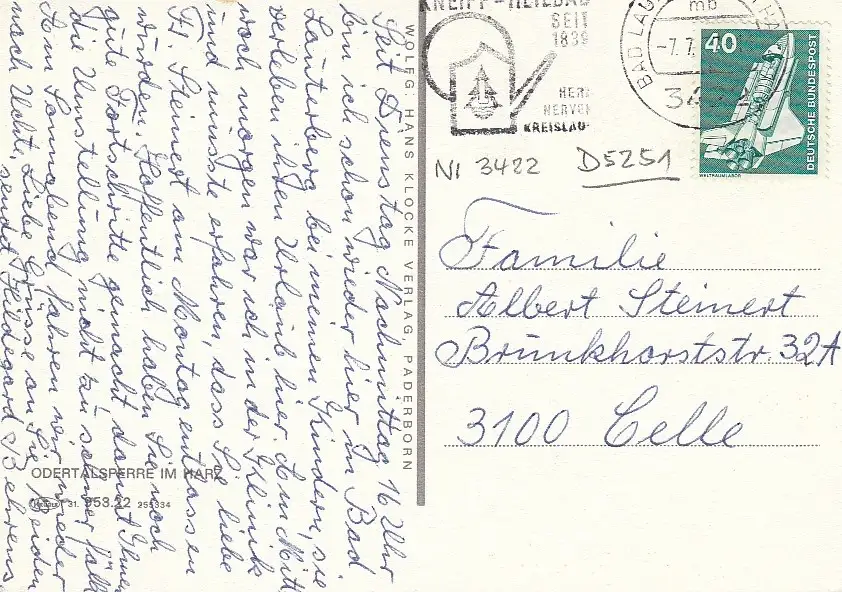 Seit Dienstag Nachmittag 16 Uhr
bin ich schon wieder hier in Bad
Lauterberg bei meinen Kindern, sie
verleben ihren Urlaub hier. Am Mitt
woch morgen war ich in der Klinik
und musste erfahren, dass Sie liebe
Fr. Steinert am Montag entlassen
wurden. Hoffentlich haben Sie noch
gute Fortschritte gemacht damit Ihnen
die Umstellung nicht zu schwer fällt
Am Sonnabend fahren wir wieder
nach Uchte, Liebe Grüsse an Sie beiden
sendet Hildegard Behrens
WOLFG. HANS KLOCKE VERLAG PADERBORN
ODERTALSPERRE IM HARZ
31. 953.22 255334
KNEIPP-HEILBAD
SEIT
1839
HERZ
NERVEN
KREISLAU
BAD LAU
mb
-7.7.
40
DEUTSCHE BUNDESPOST
WELTRAUMLABOR
NI 3422 D5251
Familie
Albert Steinert
Brunkhorststr. 32A
3100 Celle